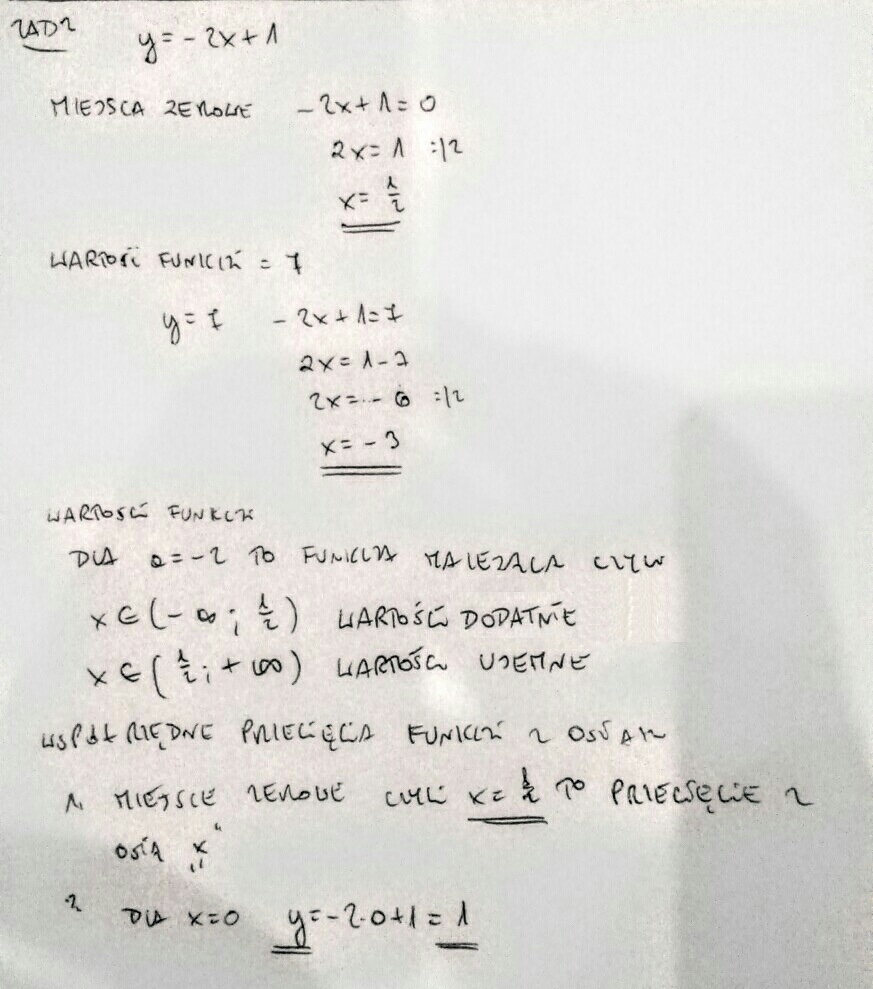 ZAD2 y = -2x + 1
MIEJSCA ZEROWE -2x + 1 = 0
2x = 1 :/2
x = 1/2
WARTOŚĆ FUNKCJI = 7
y = 7 -2x + 1 = 7
2x = 1 - 7
2x = - 6 :/2
x = - 3
WARTOŚCI FUNKCJI
DLA a = -2 TO FUNKCJA MALEJĄCA CZYLI
x ∈ (- ∞ ; 1/2) WARTOŚCI DODATNIE
x ∈ (1/2 ; + ∞) WARTOŚCI UJEMNE
WSPÓŁRZĘDNE PRZECIĘCIA FUNKCJI Z OSIAMI
1. MIEJSCE ZEROWE CZYLI x = 1/2 TO PRZECIĘCIE Z
OSIĄ „x"
2 DLA x = 0 y = -2·0+1 = 1